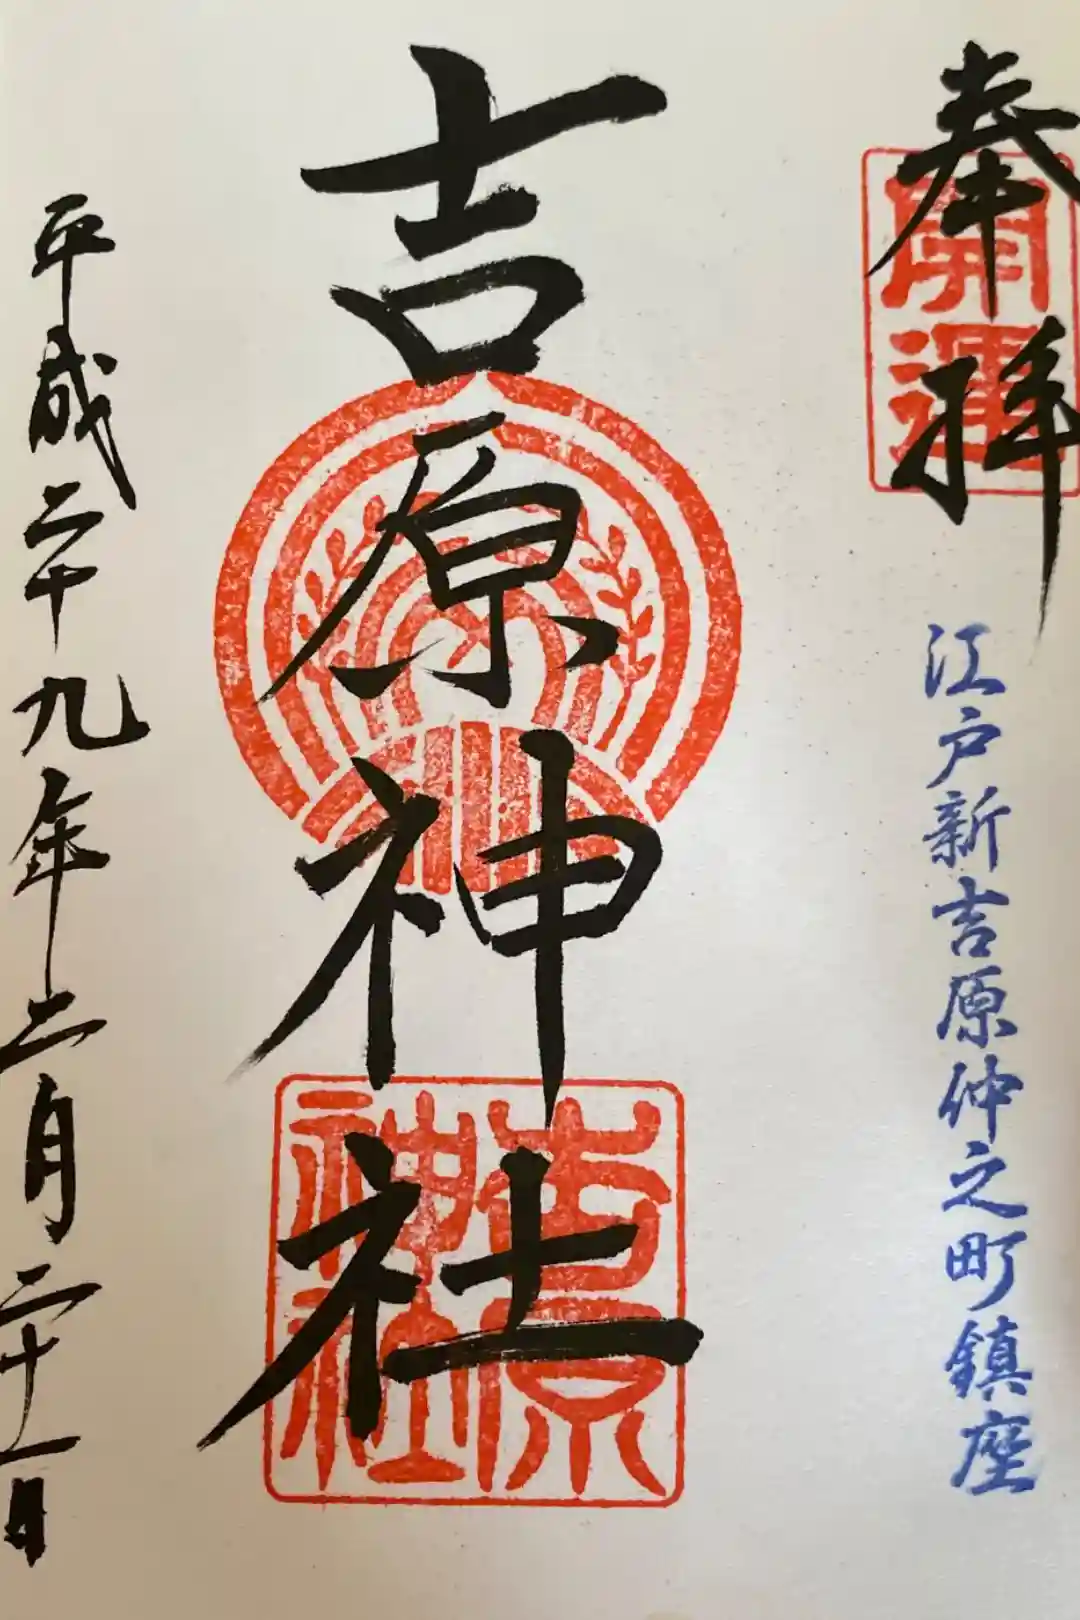 奉拝
開運
江戸新吉原仲之町鎮座
吉原神社
吉原神社
平成二十九年二月二十一日